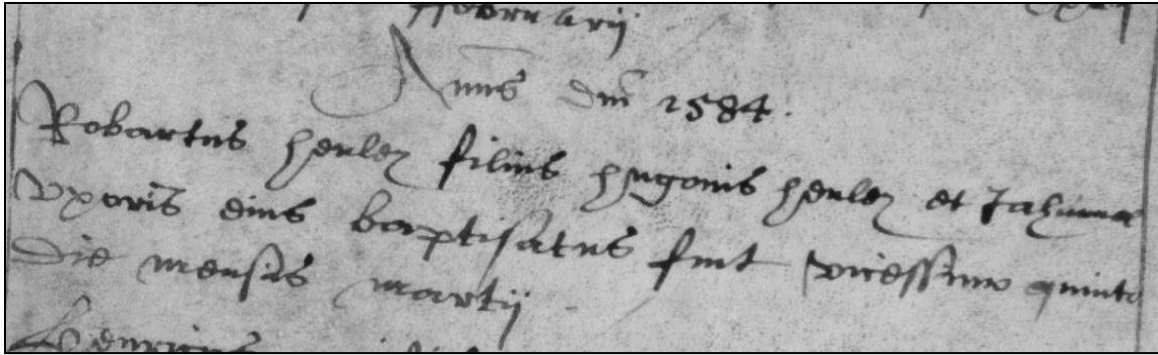 ffebruarij
Annis dni 1584.
Robartus henley filius hugonis henley et Johanna
vxoris eius baptisatus fuit vicessimo quinto
die mensis martij
henricus